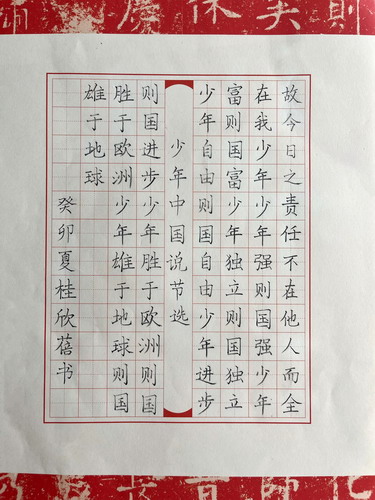 故今日之责任不在他人而全
在我少年少年强则国强少年
富则国富少年独立则国独立
少年自由则国自由少年进步
少年中国说节选
则国进步少年胜于欧洲则国
胜于欧洲少年雄于地球则国
雄于地球
癸卯夏桂欣蓓书